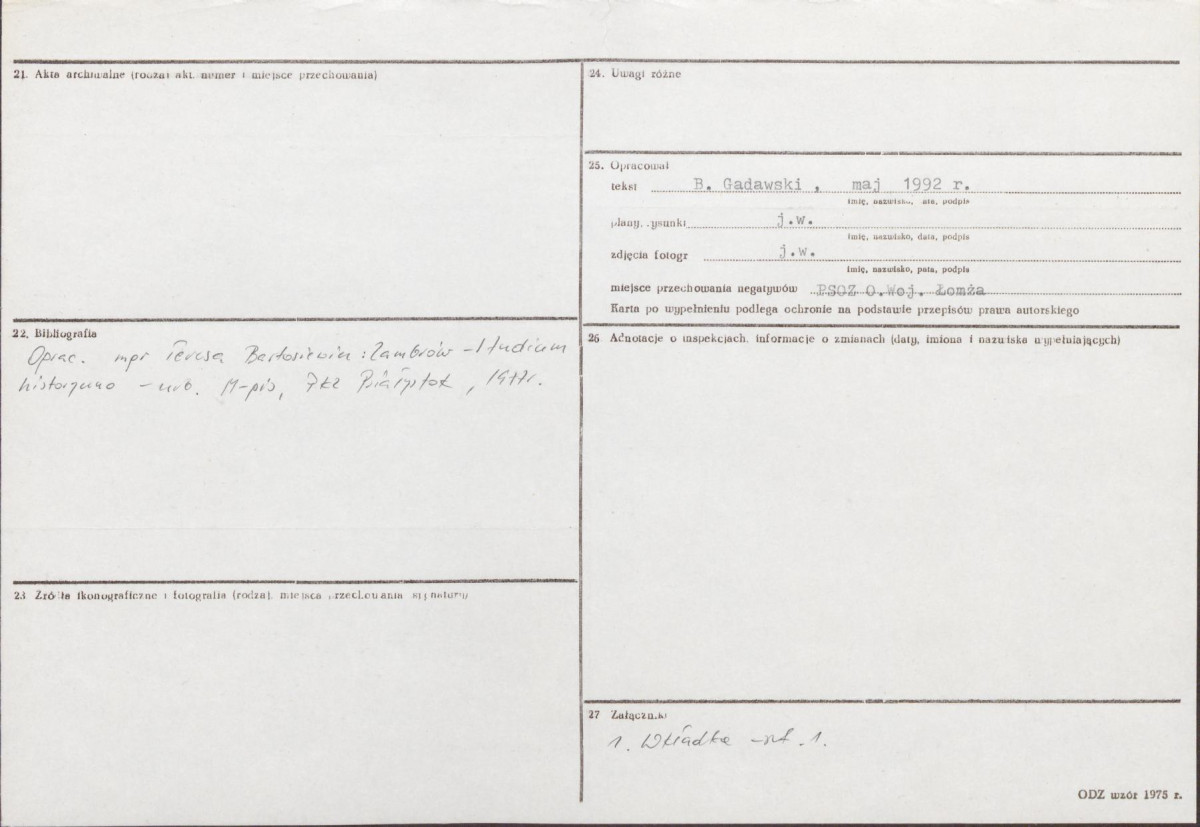 21. Akta archiwalne (rodzaj akt, numer i miejsce przechowania)
22. Bibliografia
Oprac. mgr Teresa Bartosiewicz: Zambrów - Studium
historyczno - urb. M-pis, PKZ Białystok, 1977r.
23 Źródła ikonograficzne i fotografia (rodzaj, miejsce przechowania sygnatury)
24. Uwagi różne
25. Opracował
tekst B. Gadawski , maj 1992 r.
imię, nazwisko, data, podpis
plany, rysunki j.w.
imię, nazwisko, data, podpis
zdjęcia fotogr j.w.
imię, nazwisko, pata, podpis
miejsce przechowania negatywów PSOZ O.Woj. Łomża
Karta po wypełnieniu podlega ochronie na podstawie przepisów prawa autorskiego
26 Adnotacje o inspekcjach, informacje o zmianach (daty, imiona i nazwiska wypełniających)
27 Załączniki
1. Wkładka - szt. 1.
ODZ wzór 1975 r.